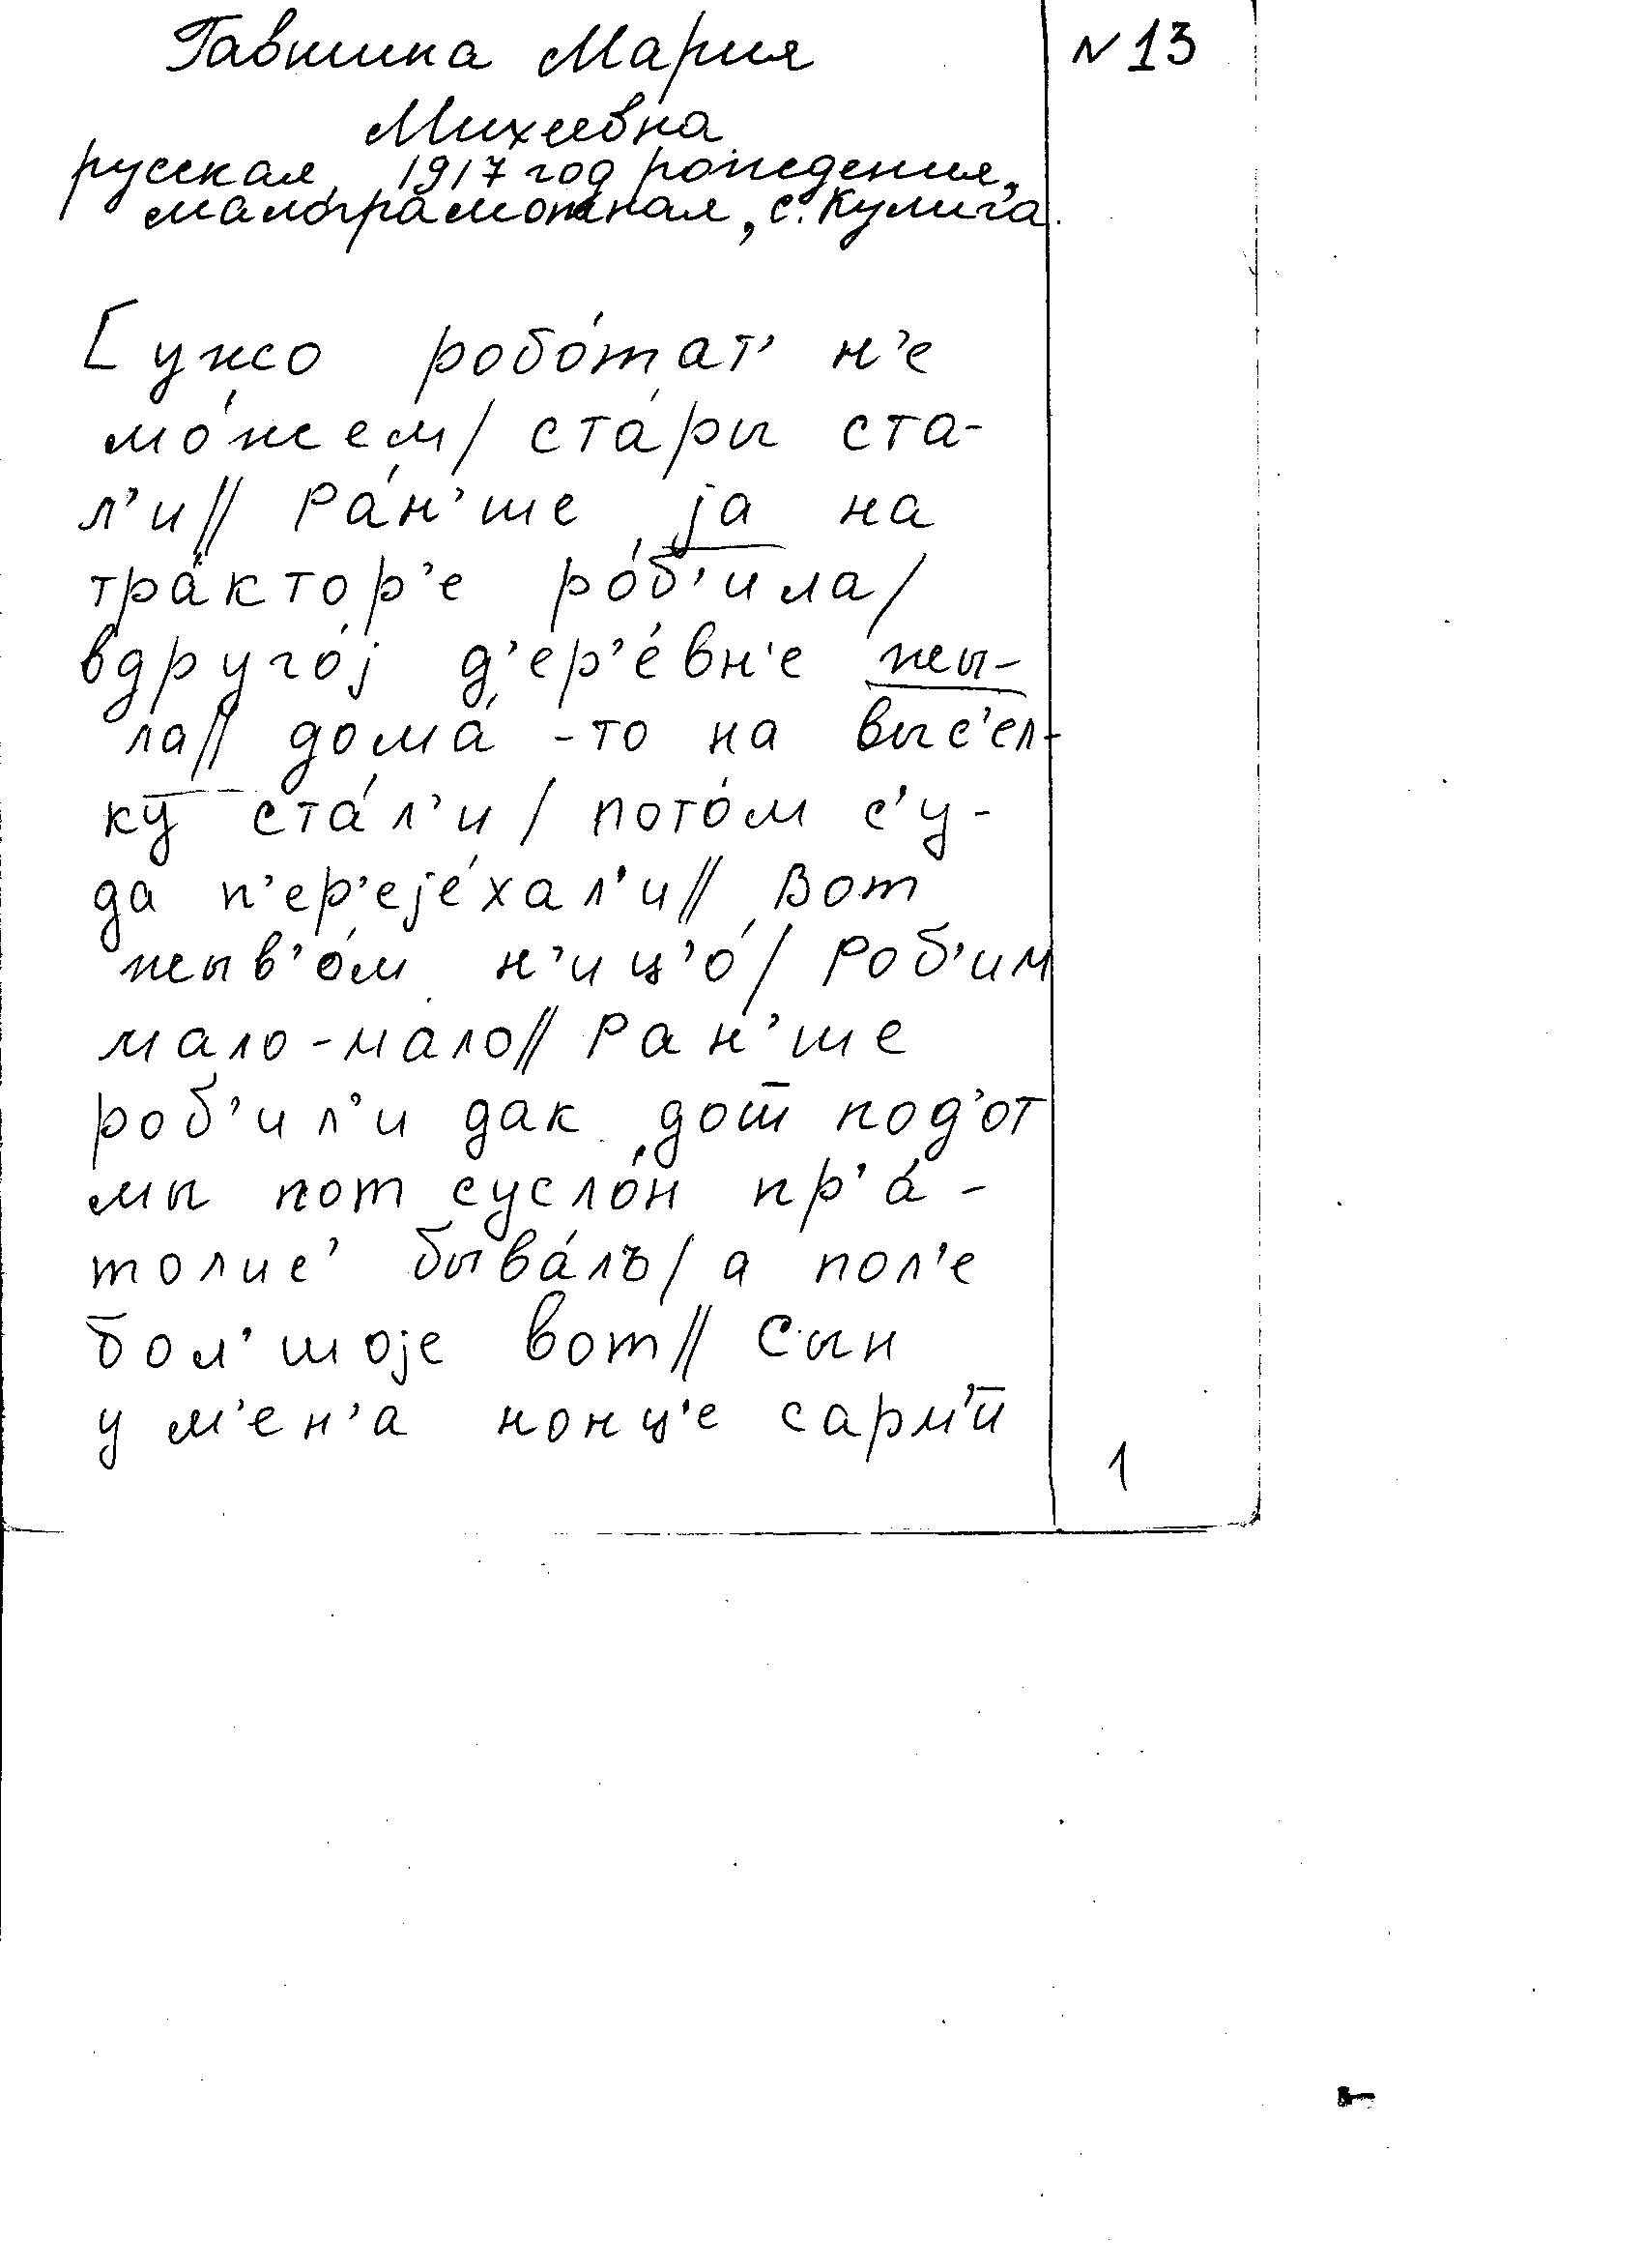 Гавшина Мария
№13
Михеевна
русская, 1917 год рождения,
малограмотная, с. Кулига.
[ужо робо́тат' н'е
мо́жем/ ста́ры ста-
л'и// Ра́н'ше ја на
тра́ктор'е ро́б'ила/
вдруго́ј д'ер'е́вн'е жы-
ла// дома́-то на выс'ел-
ку ста́л'и/ пото́м с'у-
да п'ер'еје́хал'и// Вот
жыв'о́м н'иц'о́/ Роб'им
мало-мало// Ран'ше
роб'ил'и дак дош под'от
мы пот сусло́н пр'а́-
толис' быва́лъ/ а пол'е
бол'шоје вот// Сын
у м'ен'а нонц'е сарм'и
1